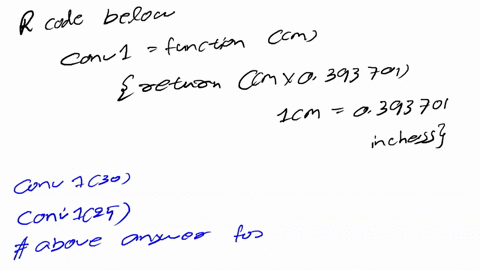 R code below
conv1 = function (cm)
{return (cm x 0.393701)
1cm = 0.393701
inchess}
conv1(30)
conv1(25)
# above answer for